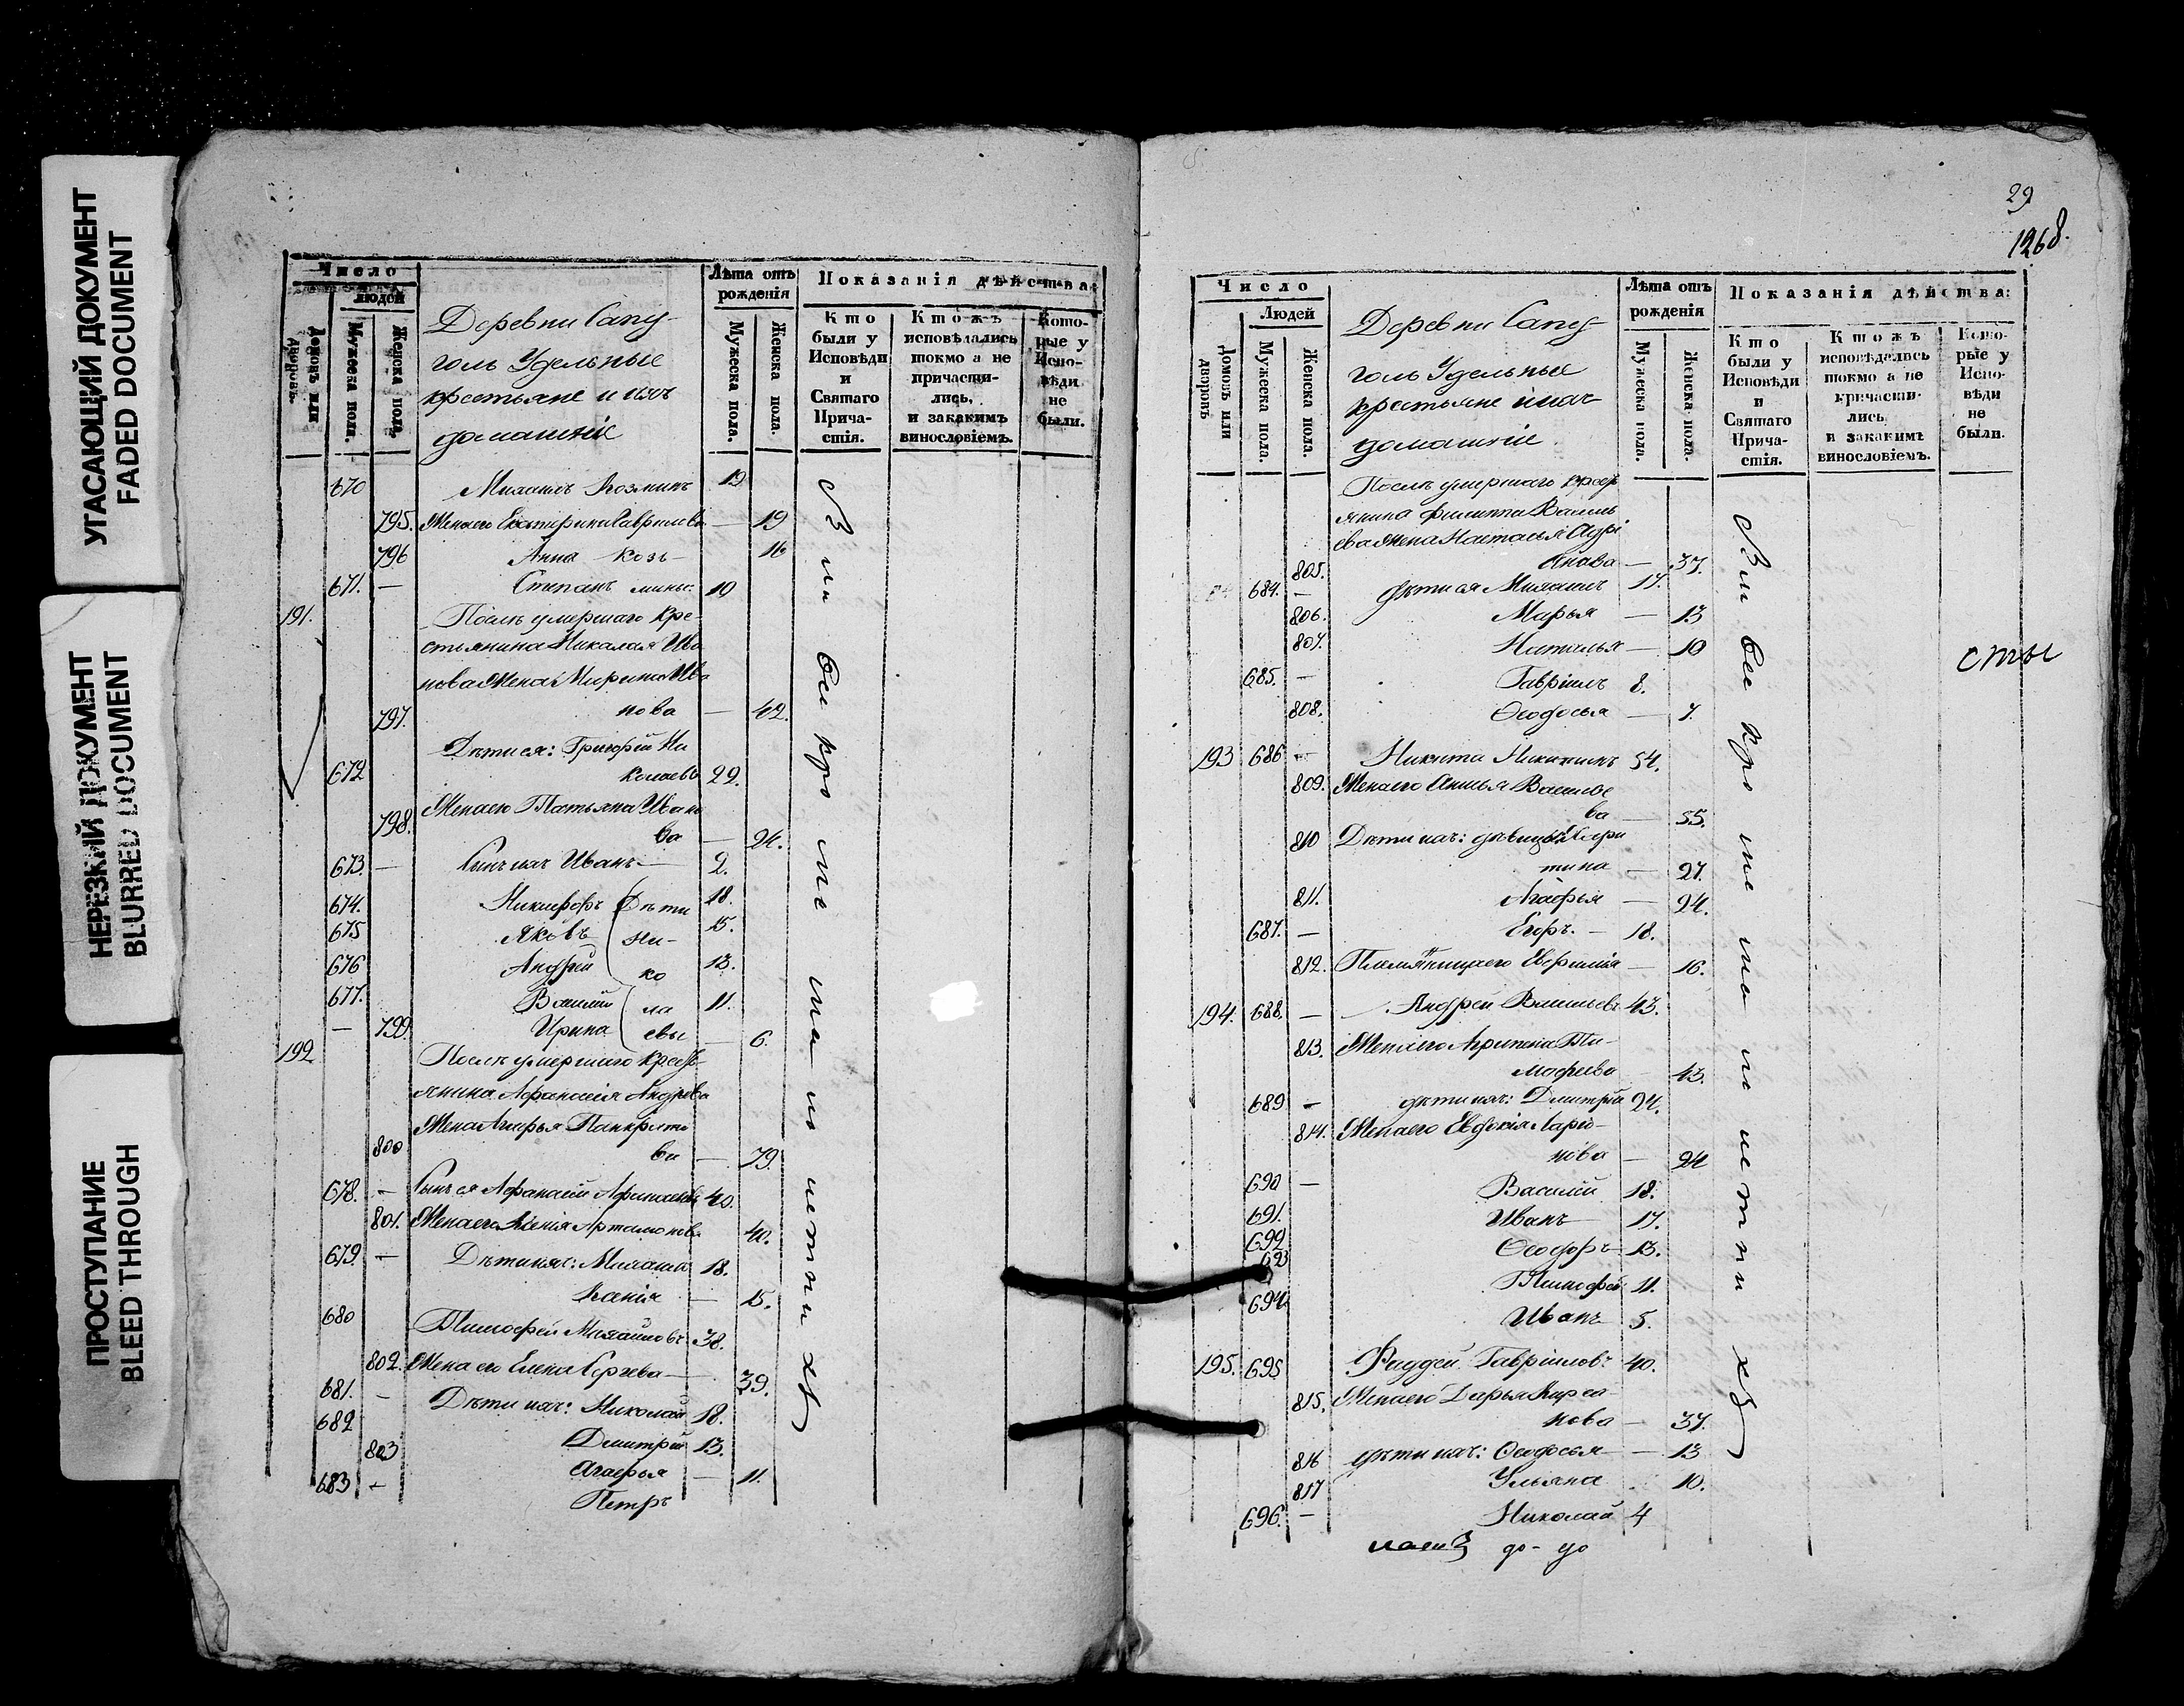 УГАСАЮЩИЙ ДОКУМЕНТ
FADED DOCUMENT
НЕРЕЗКИЙ ДОКУМЕНТ
BLURRED DOCUMENT
ПРОСТУПАНИЕ
BLEED THROUGH
Число
людей
Домовъ или дворовъ.
Мужеска пола.
Женска пола.
Деревни Сапу-
голь Удельные
крестьяне и ихъ
домашніе
Лѣта отъ рожденія
Мужеска пола.
Женска пола.
Показанія дѣйства:
Кто были у Исповѣди и Святаго Прича-стія.
Ктожъ исповѣдались токмо а не причасти-лись, и закакимъ винословіемъ.
Кото-рые у Испо-вѣди не были.
670 Михаилъ Козминъ 19
795. Жена его Екатерина Гаврилова — 19
796 Анна Козь- 16
671. — Степанъ мины: 10
191. Послѣ умершаго кре-
стьянина Николая Ива
нова Жена Марина Ива
797. нова — 42.
Дѣти ея: Григорій Ни
672 колаевъ 22.
Жена его Татьяна Ивано
798. ва — 24.
673. — Сынъ ихъ Иванъ 2.
674. Никифоръ Дѣти 18.
675 Яковъ Ни- 15.
676 Андрей ко 13.
677. Василій ла 11.
— 799. Ирина евы — 6.
192 Послѣ умершаго крестъ
янина Афанасія Андреева
Жена Агафья Панкрато
800 ва — 79.
678. — Сынъ ея Афанасій Афанасьевъ 40.
801. Жена его Ксенія Артамонова 40.
679. — Дѣти ихъ: Михаилъ 18.
Ксенія — 15.
680 Тимофей Михайловъ 38.
802. Жена его Елена Сергѣева — 39.
681. — Дѣти ихъ: Николай 18.
682 Дмитрій 13.
803 Агафья — 11.
683 — Петръ
29
1268.
Число
Людей
Домовъ или дворовъ
Мужеска пола.
Женска пола.
Деревни Сапу-
голь Удельные
крестьяне и ихъ
домашніе
Лѣта отъ рожденія
Мужеска пола.
Женска пола.
Показанія дѣйства:
Кто были у Исповѣди и Святаго Прича-стія.
Ктожъ исповѣдались токмо а не причасти-лись, и закакимъ винословіемъ.
Кото-рые у Испо-вѣди не были.
Послѣ умершаго крестъ
янина Филиппа Василь
ева Жена Настасья Адрі
805. анова — 37.
684. — дѣти ея Михаилъ 17.
806. Марья — 13
807. Наталья — 10
685. — Гавріилъ 8.
808. Ѳеодосья — 7.
сты
193 686 — Никита Никитинъ 54.
809. Жена его Анисья Василье
ва — 55.
810 Дѣти ихъ: дѣвица
тина — 27.
811. Агафья — 24.
687. — Егоръ. — 18.
812. Племянница его Евфимія — 16.
194. 688. — Андрей Васильевъ 43.
813. Жена его Агрипена Ти-
мофеева 43.
689 — дѣти ихъ: Дмитрій 24.
814. Жена его Евдокія Ларіо-
нова — 24
690 — Василій 18.
691. Иванъ 17.
692 Ѳеодоръ 13.
693 Тимофей 11.
694. Иванъ 5.
195. 695 Фаддей Гавріиловъ 40.
815. Жена его Дарья Кирса-
нова — 37.
816 дѣти ихъ: Ѳеодосья — 13
817 Ульяна 10.
696. — Николай 4